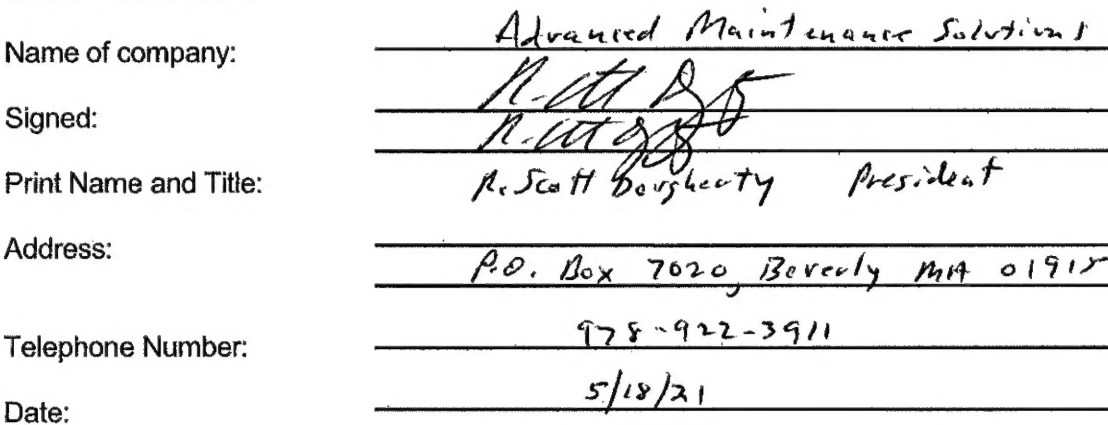 Name of company: Advanced Maintenance Solutions
Signed:
Print Name and Title: R. Scott Dougherty President
Address: P.O. Box 7020, Beverly MA 01915
Telephone Number: 978-922-3911
Date: 5/18/21